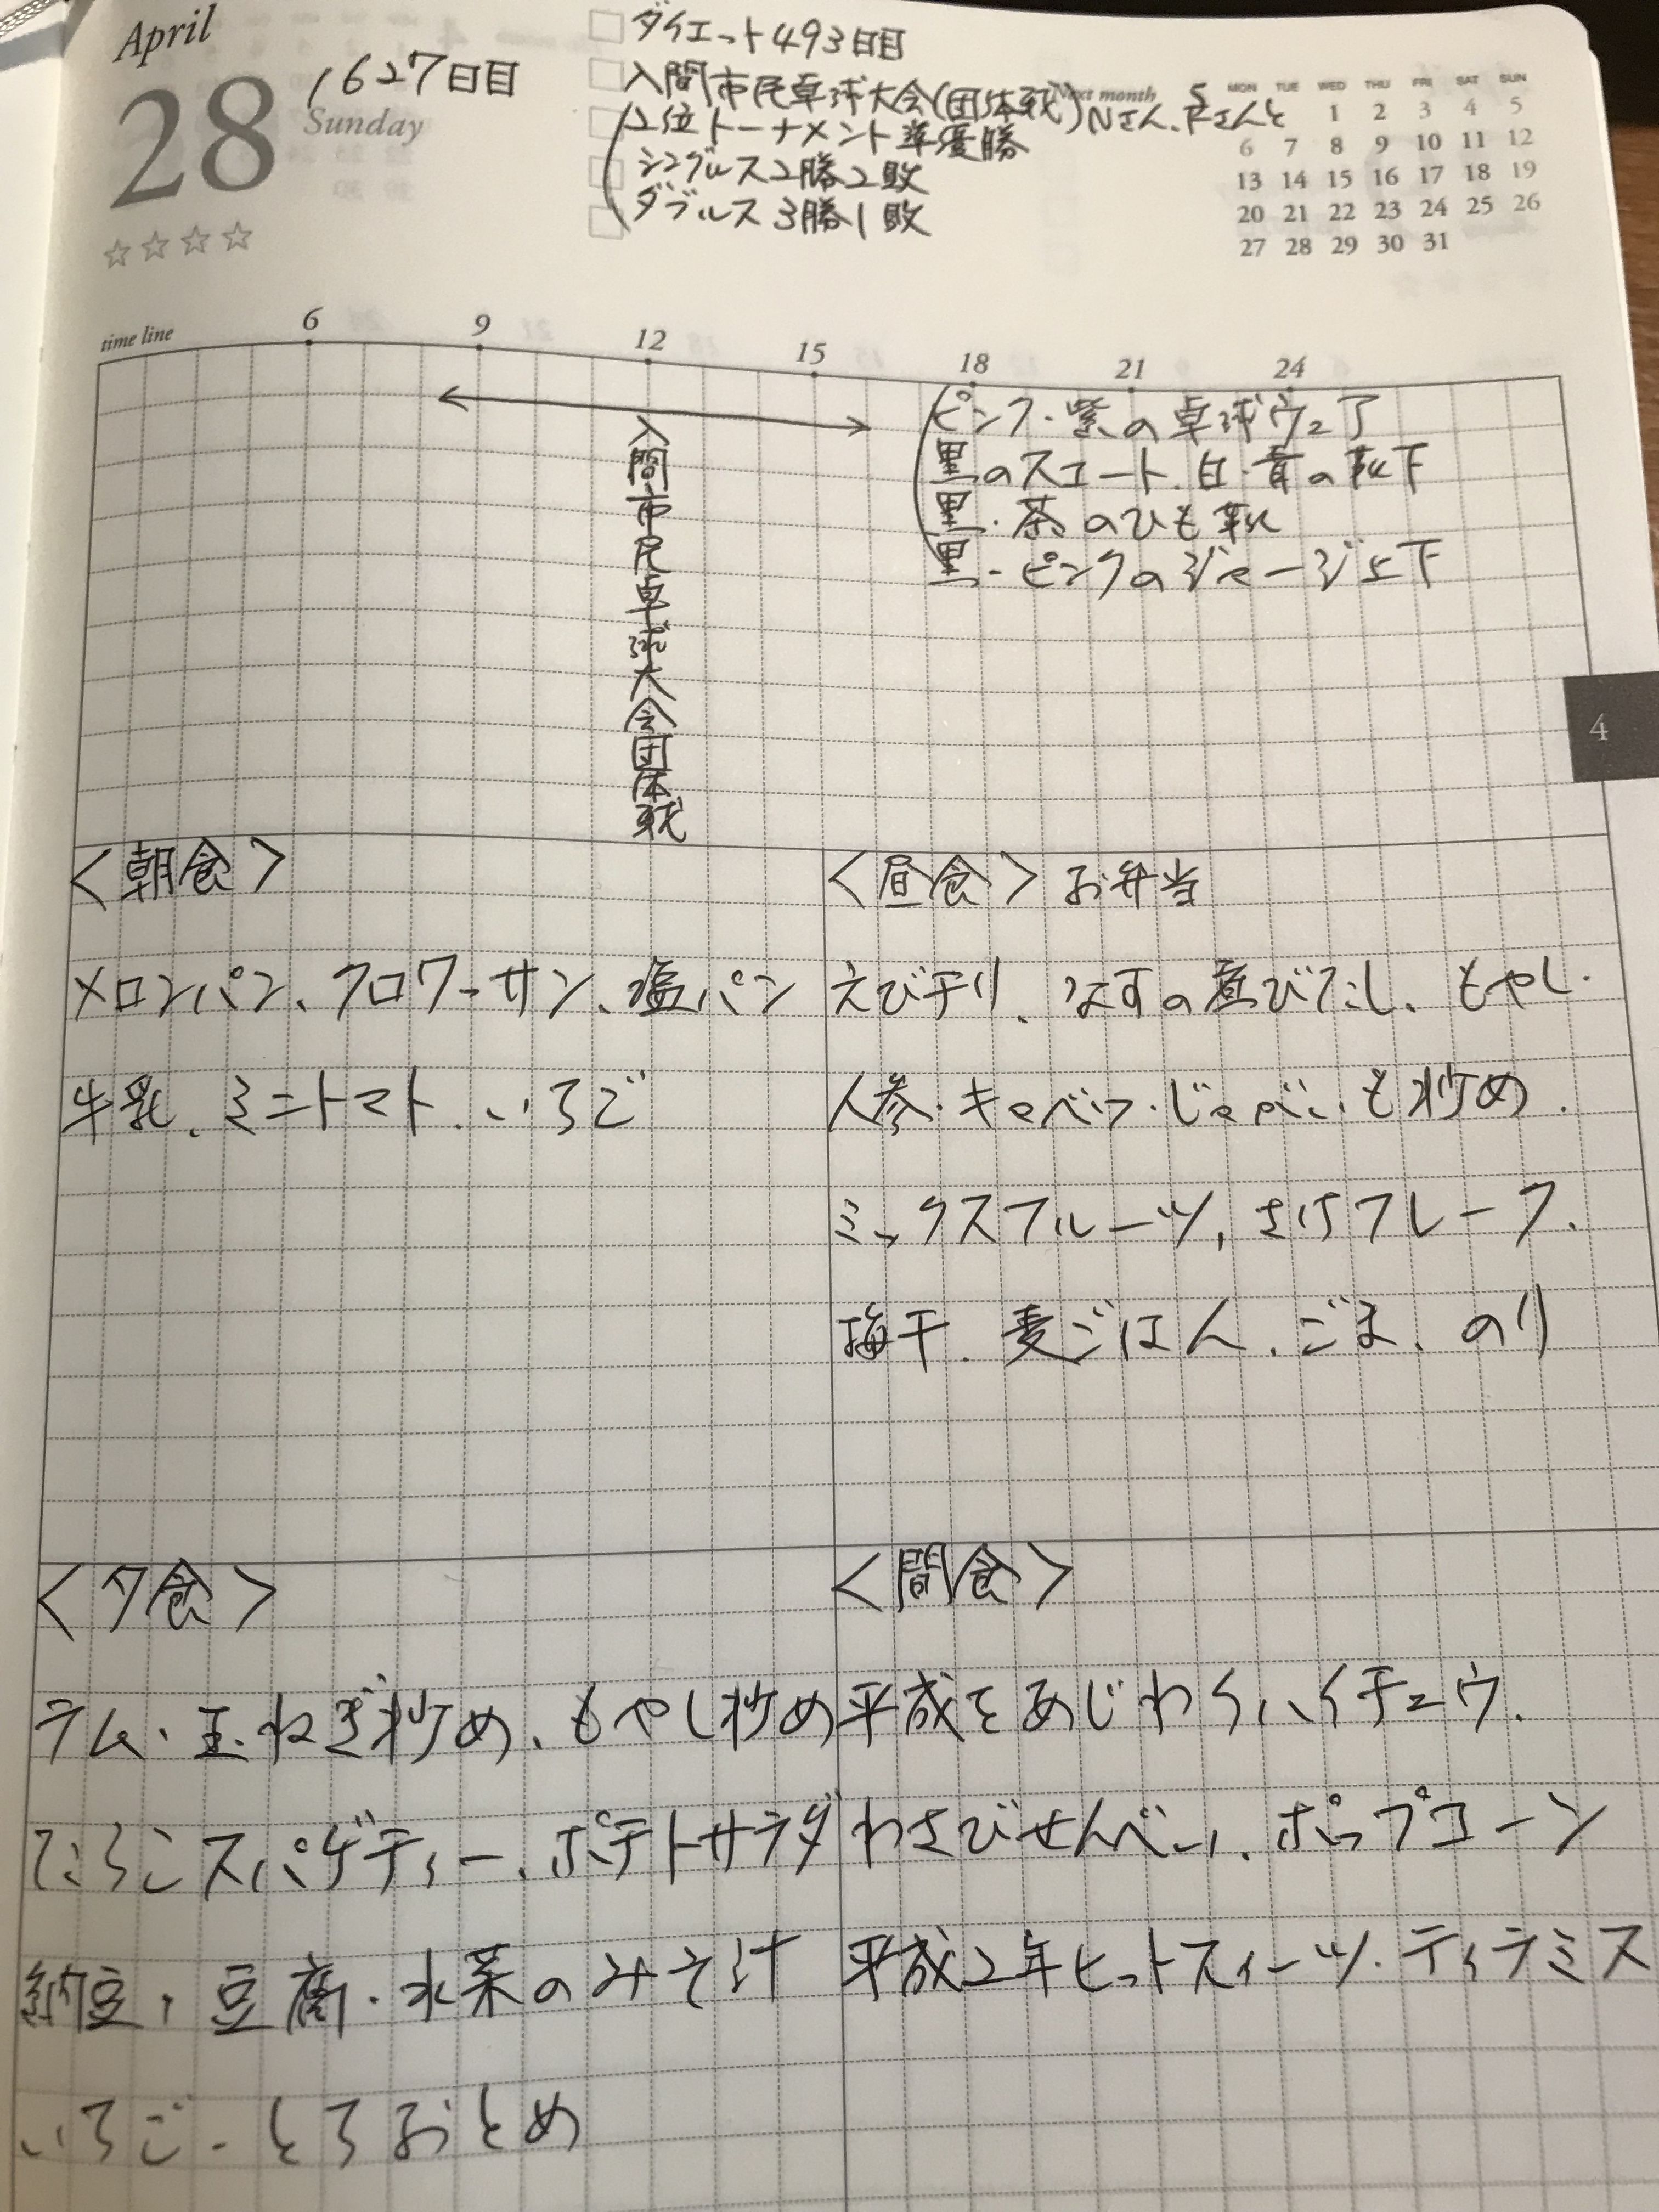 April
28
1627日目
Sunday
ダイエット493日目
入間市民卓球大会(団体戦)Nさん、Fさんと
2位トーナメント準優勝
シングルス2勝2敗
ダブルス3勝1敗
Next month 5
MON TUE WED THU FRI SAT SUN
1 2 3 4 5
6 7 8 9 10 11 12
13 14 15 16 17 18 19
20 21 22 23 24 25 26
27 28 29 30 31
time line 6 9 12 15 18 21 24
入間市民卓球大会団体戦
ピンク・紫の卓球ウェア
黒のスコート、白・青の靴下
黒・茶のひも靴
黒・ピンクのジャージ上下
4
<朝食>
メロンパン、クロワーサン、塩パン
牛乳、ミニトマト、いちご
<昼食>お弁当
えびチリ、なすの煮びたし、もやし・
人参・キャベツ・じゃがいも炒め、
ミックスフルーツ、さけフレーク、
梅干、麦ごはん、ごま、のり
<夕食>
ラム・玉ねぎ炒め、もやし炒め
たらこスパゲティー、ポテトサラダ
納豆、豆腐・水菜のみそ汁
いちご・とちおとめ
<間食>
平成をあじわうハイチュウ、
わさびせんべい、ポップコーン
平成2年ヒットスイーツ・ティラミス